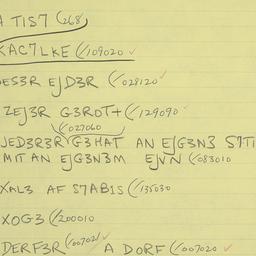 A TIS7 (268)
KAC7LKE (109020 ✓
DES3R EJD3R (028120 ✓
ZEJ3R G3ROT+ (129090 ✓
(027060
JED3R3R G3HAT AN EJG3N3 S7TI
MIT AN EJG3N3M EJVN (083010
XAL3 AF S7AB1S (135030
XOG3 (200010
DERF3R (007021 ✓ A DORF (007020 ✓